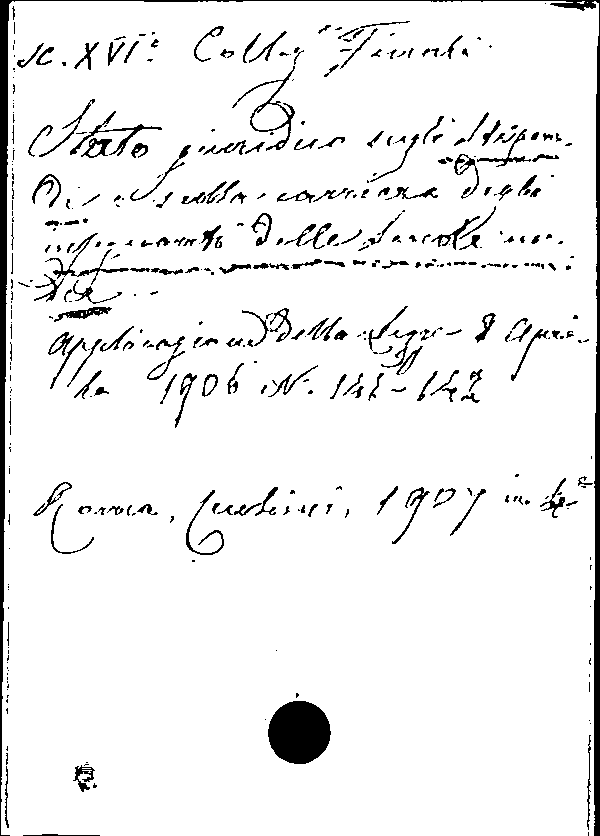 Sc. XVIa Colleg Finali
Stato giuridico sugli stipen-
di e sulla carriera degli
insegnanti delle scuole me-
die
Applicazione della Legge 8 Apri-
le 1906 N. 141-142
Roma, Cecchini, 1907 in